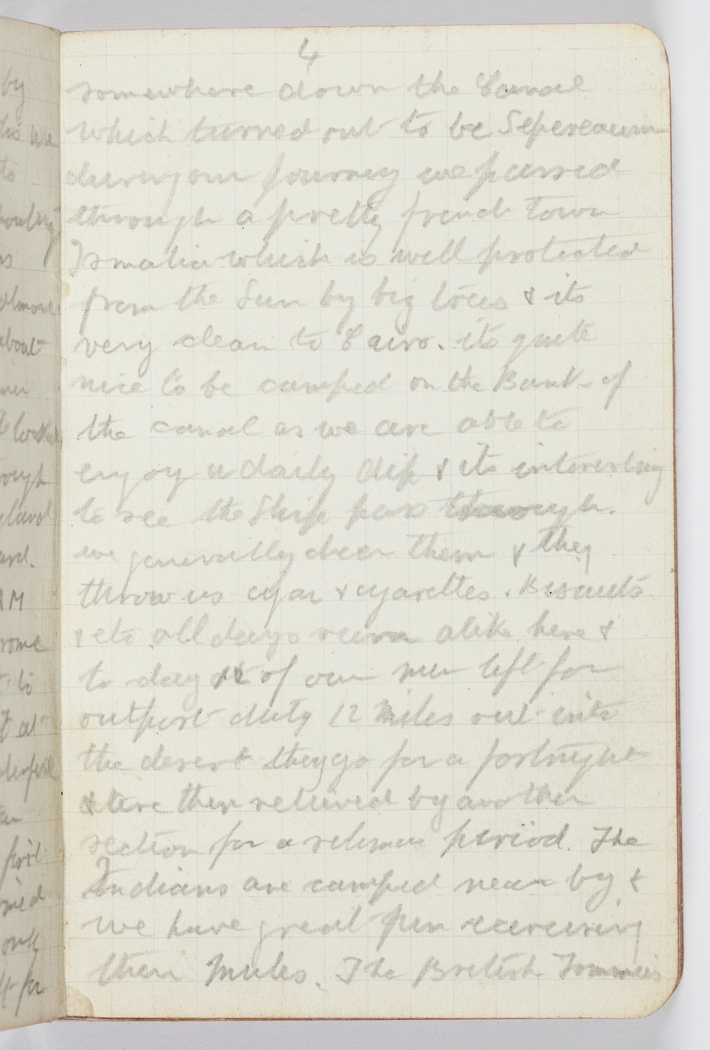 4
somewhere down the Canal
which turned out to be Sepereaum
during our journey we passed
through a pretty french town
Ismalia which is well protected
from the Sun by big trees & its
very clean to Cairo. its quite
nice to be camped on the Bank of
the canal as we are able to
enjoy a daily dip & its interesting
to see the Ship pass through.
we generally cheer them & they
throw us cigar & cigarettes. Biscuits
& etc. all days seem alike here &
to day 12 of our men left for
outpost duty 12 Miles out into
the desert they go for a fortnight
& are then relieved by another
section for a period. The
Indians are camped near by &
we have great fun exercising
their Mules. The British Tommies
by
to
about
rough
AM
to
at
first
only
for